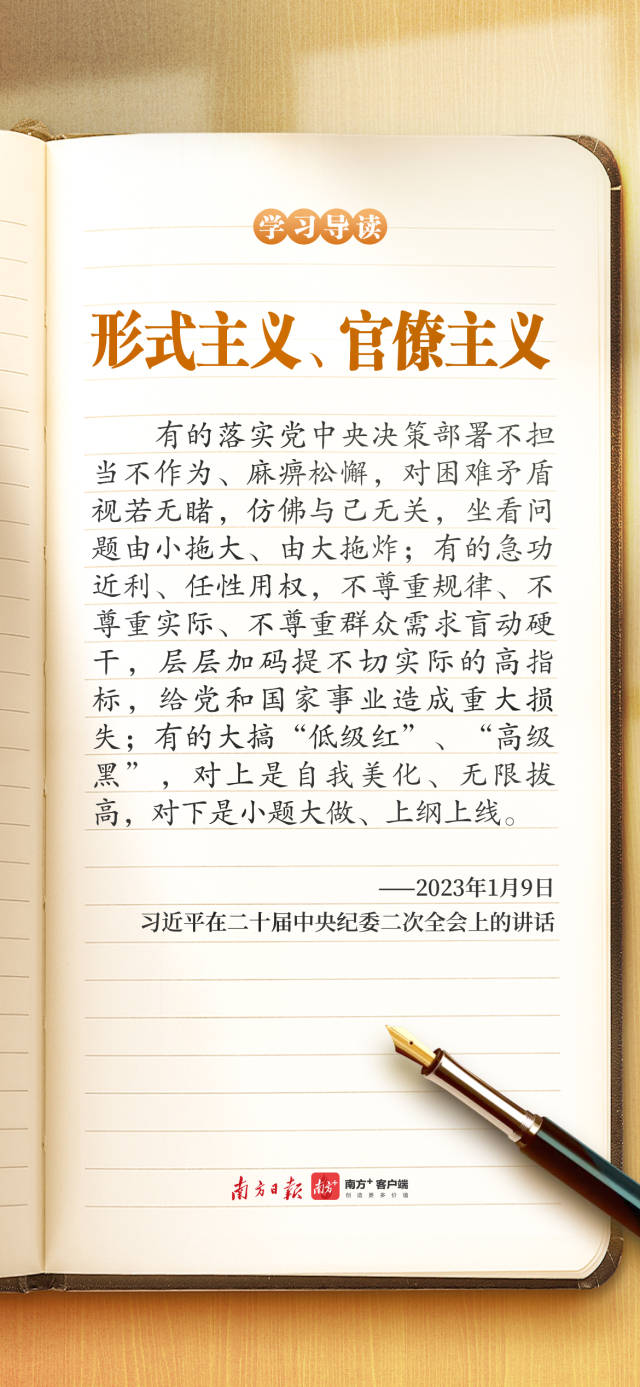 学习导读
形式主义、官僚主义
有的落实党中央决策部署不担
当不作为、麻痹松懈，对困难矛盾
视若无睹，仿佛与己无关，坐看问
题由小拖大、由大拖炸；有的急功
近利、任性用权，不尊重规律、不
尊重实际、不尊重群众需求盲动硬
干，层层加码提不切实际的高指
标，给党和国家事业造成重大损
失；有的大搞“低级红”、“高级
黑”，对上是自我美化、无限拔
高，对下是小题大做、上纲上线。
——2023年1月9日
习近平在二十届中央纪委二次全会上的讲话
南方日报 南方+ 南方+ 客户端
创造更多价值